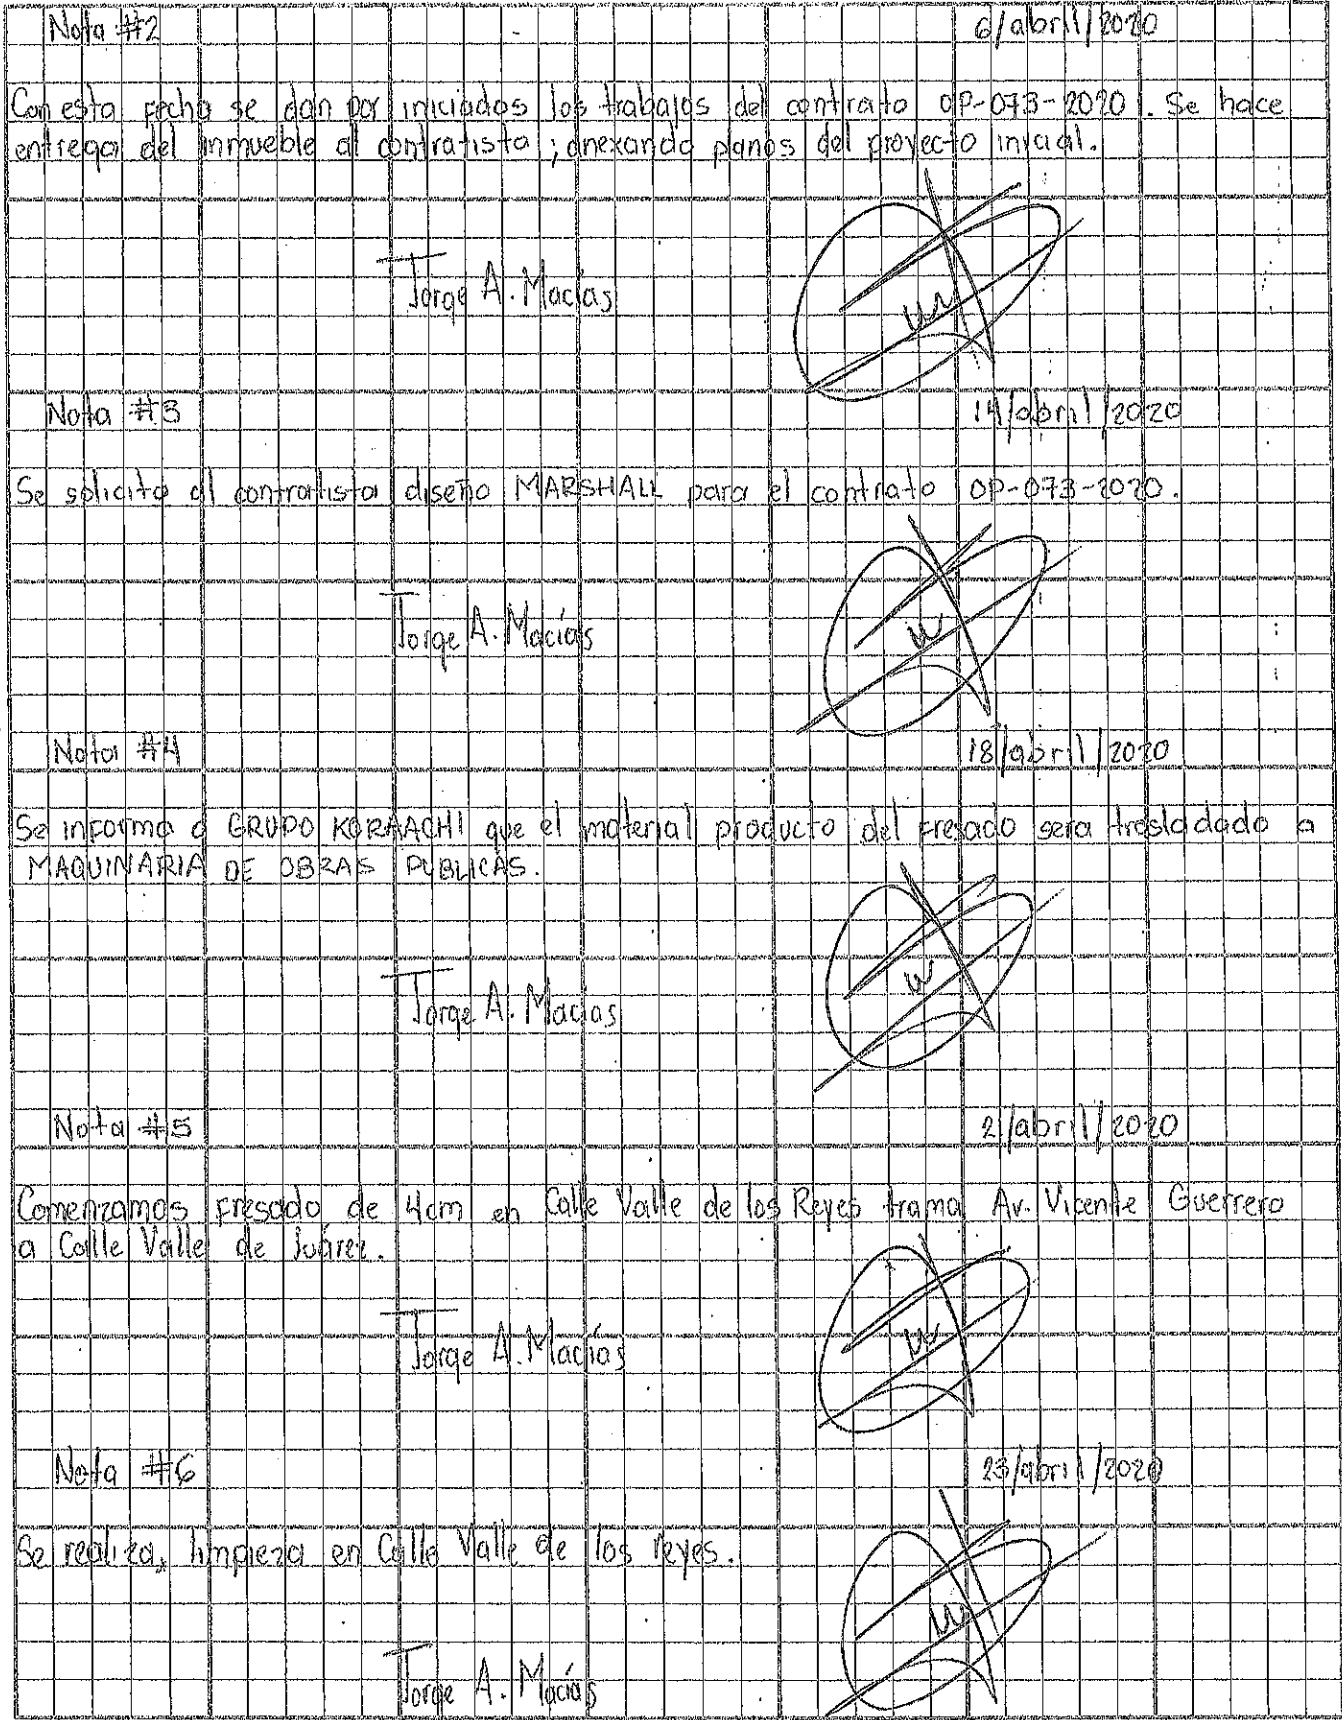 Nota #2 6/abril/2020
Con esta fecha se dan por iniciados los trabajos del contrato OP-073-2020. Se hace
entrega del inmueble al contratista; anexando planos del proyecto inicial.
Jorge A. Macías
Nota #3 14/abril/2020
Se solicita al contratista diseño MARSHALL para el contrato OP-073-2020.
Jorge A. Macías
Nota #4 18/abril/2020
Se informa a GRUPO KORAACHI que el material producto del fresado sera trasladado a
MAQUINARIA DE OBRAS PUBLICAS.
Jorge A. Macias
Nota #5 21/abril/2020
Comenzamos fresado de 4cm en Calle Valle de los Reyes tramo Av. Vicente Guerrero
a Calle Valle de Juárez.
Jorge A. Macías
Nota #6 23/abril/2020
Se realiza, limpieza en Calle Valle de los reyes.
Jorge A. Macías